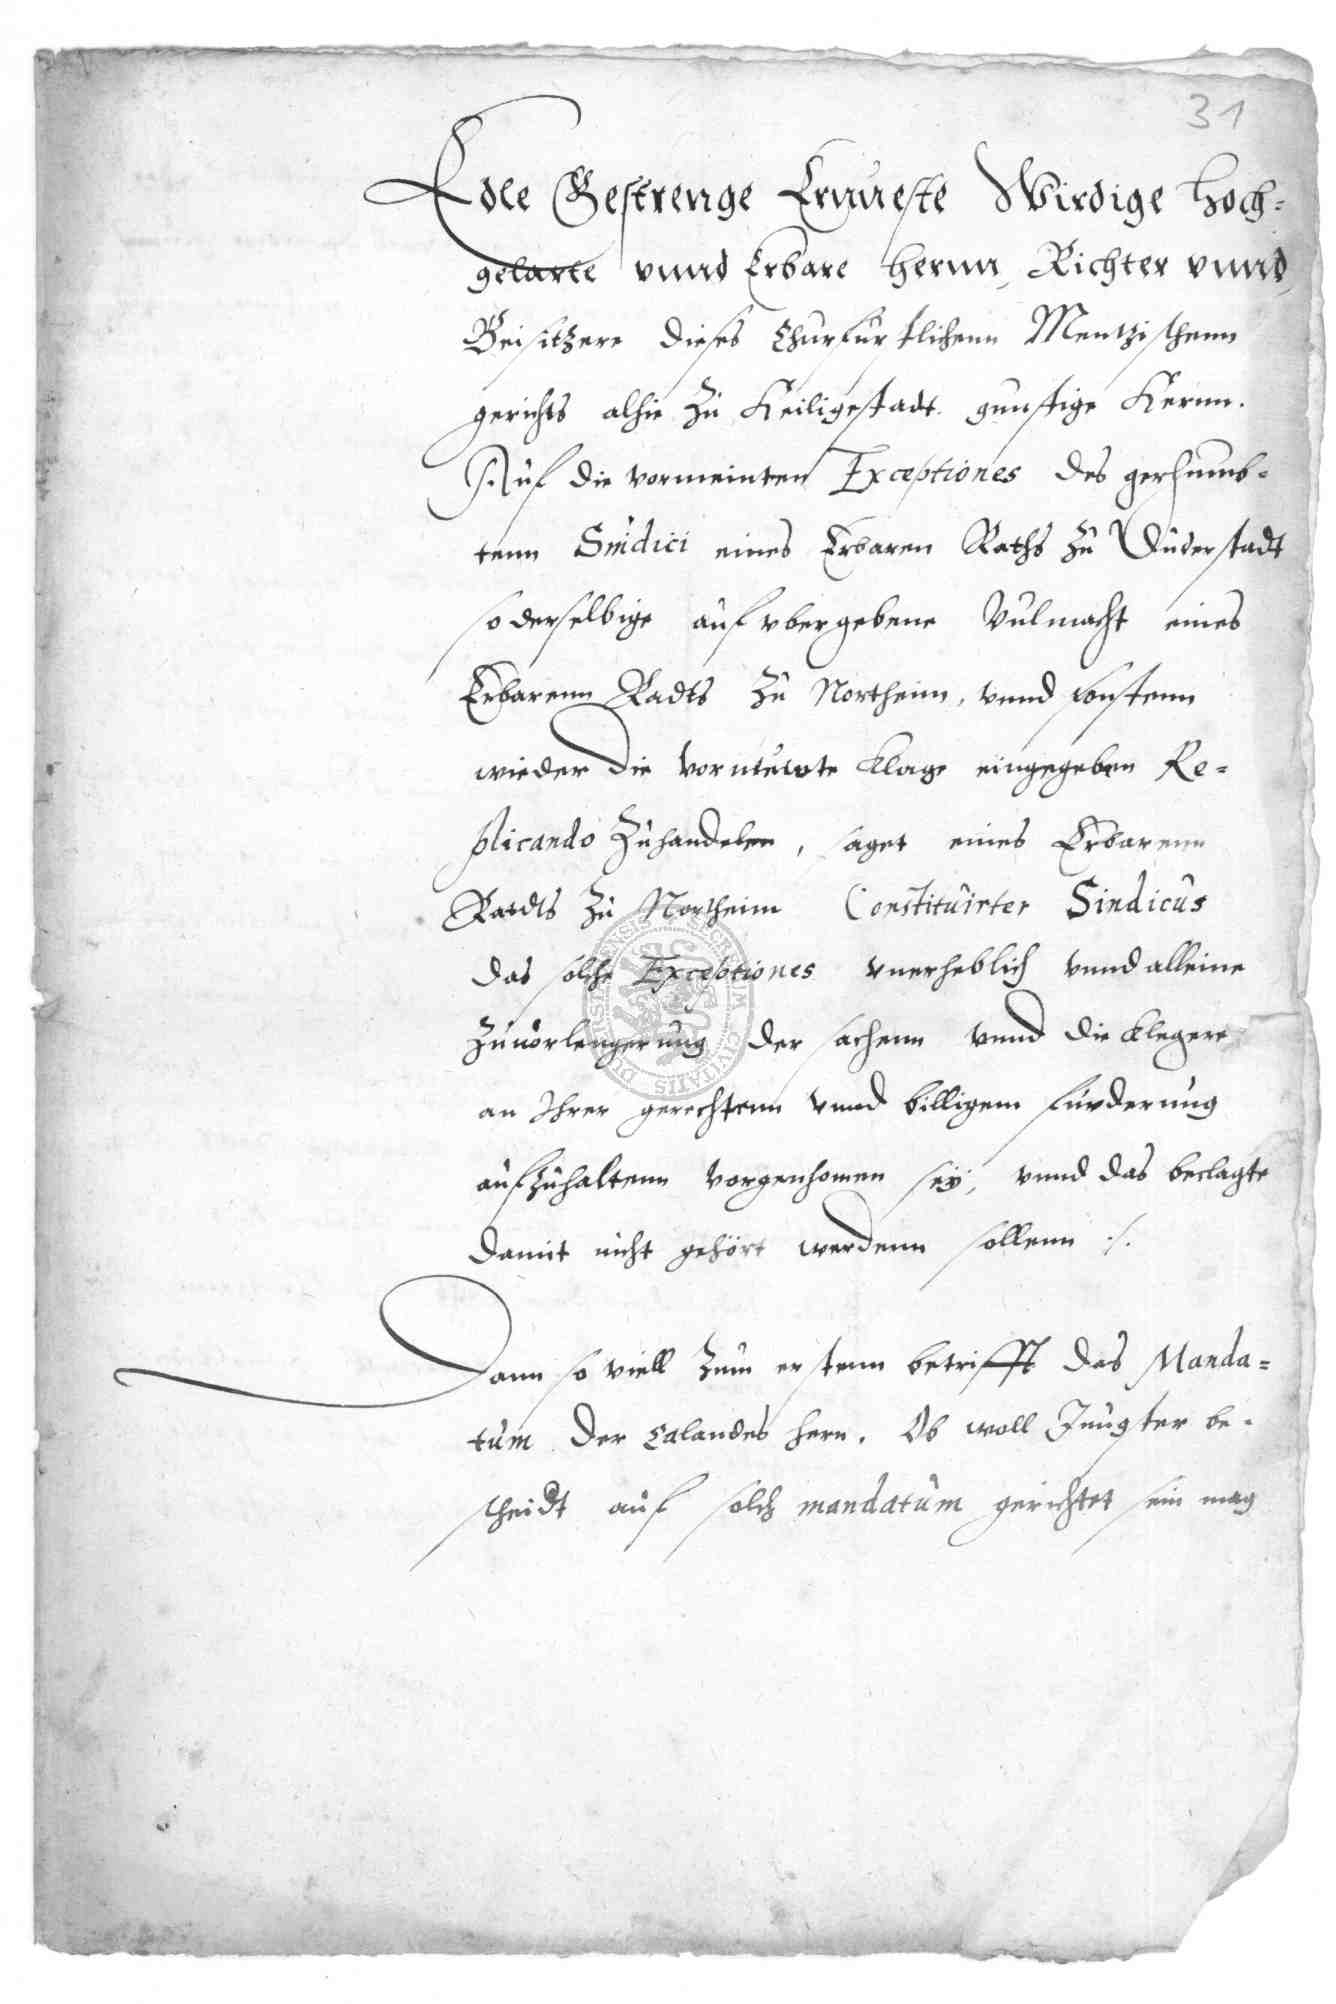 31
Edle Gestrenge Ernueste Wirdige Hoch-
gelarte vnnd Erbare Hernn, Richter vnnd
Beisitzere dieses Churfurstlichenn Mentzischenn
gerichts alhie zu Heiligestadt gunstige Hernn.
Auf die vormeinten Exceptiones des gerhumb-
tenn Sindici eines Erbaren Raths zu Duderstadt
so derselbige auf vbergebene Vulmacht eines
Erbarenn Radts zu Northeim, vnnd sonstenn
wieder die vornewte Klage eingegeben Re-
plicando zuhandelen, saget eines Erbarenn
Radts zu Northeim Constituirter Sindicus
das solche Exceptiones vnerheblich vnnd alleine
zuuorlengerung der sachenn vnnd die Klegere
an Ihrer gerechtenn vnnd billigem furderung
aufzuhaltenn vorgenhomen sey, vnnd das beclagte
damit nicht gehört werdenn sollenn ./.
Dann so viell zum erstenn betrifft das Manda-
tum der Calandes hern. Ob woll Jungster be-
scheidt auf solch mandatum gerichtet sein mag
SECRETUM CIVITATIS